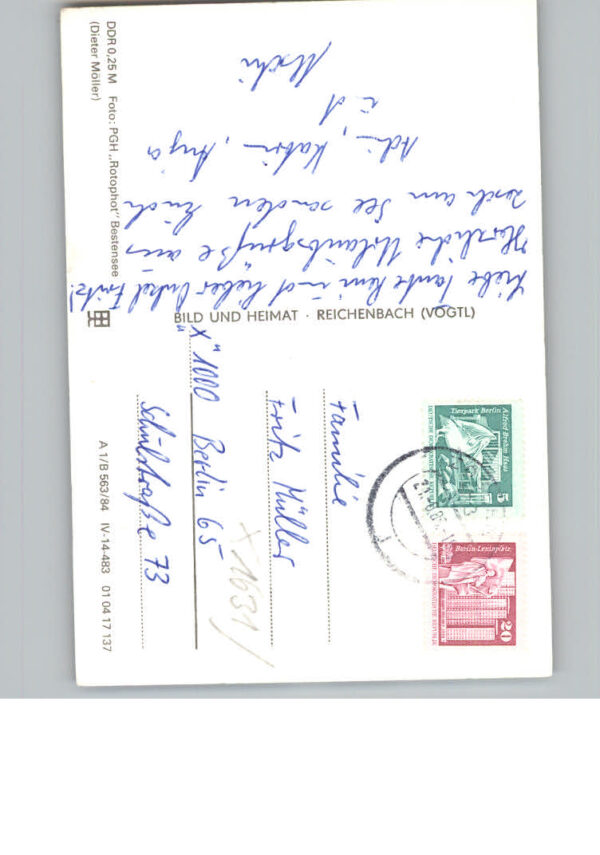 Liebe Tante Leni und lieber Onkel Fritz!
Herzliche Urlaubsgrüße aus
Zesch am See senden Euch
Adi, Katrin, Anja
und
Uschi
DDR 0,25 M Foto: PGH „Rotophot“ Bestensee
(Dieter Möller)
BILD UND HEIMAT · REICHENBACH (VOGTL)
Familie
Fritz Müller
"X" 1000 Berlin 65
Schulstraße 73
X 1631/
A 1/B 563/84 IV-14-483 01 04 17 137
Tierpark Berlin Alfred-Brehm-Haus
5
Berlin-Leninplatz
20